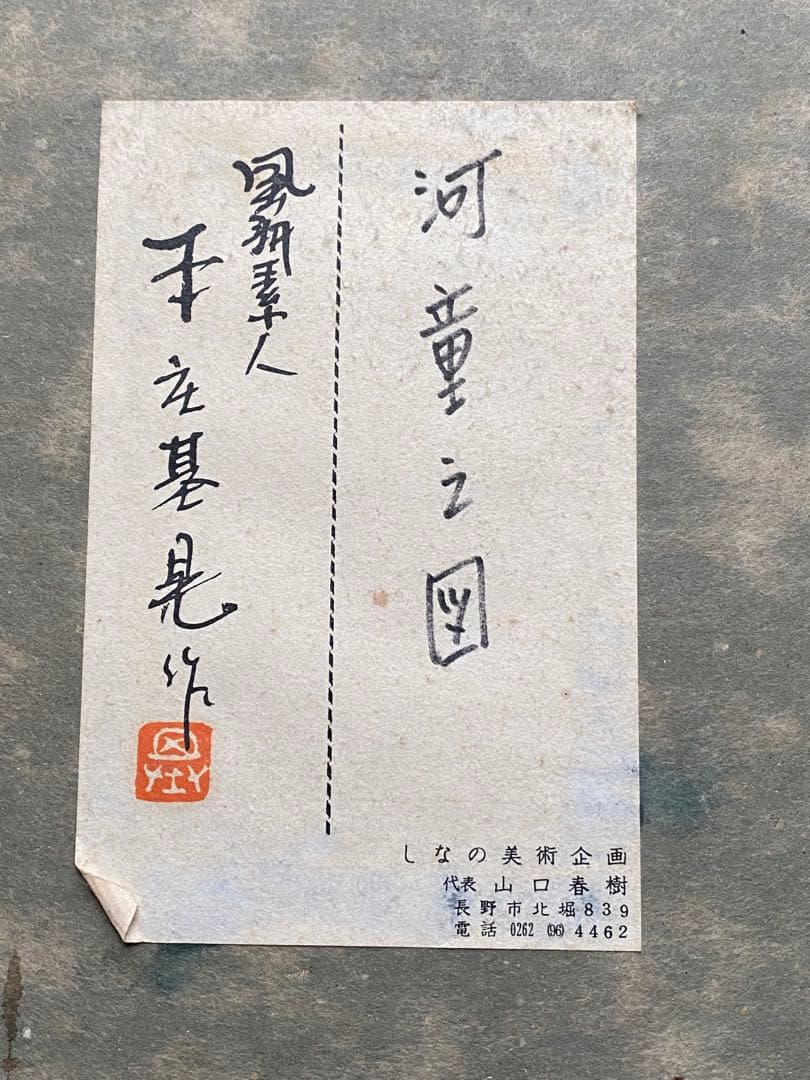 河童之図
風研素人
本庄基晃作
しなの美術企画
代表 山口春樹
長野市北堀839
電話 0262 (96) 4462